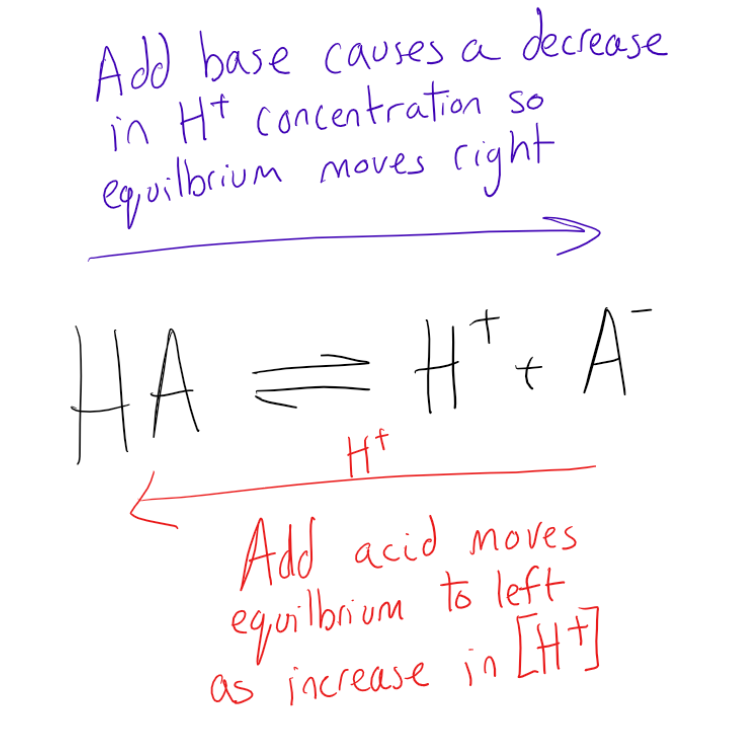 Add base causes a decrease
in H⁺ concentration so
equilbrium moves right
HA ⇌ H⁺ + A⁻
H⁺
Add acid moves
equilbrium to left
as increase in [H⁺]